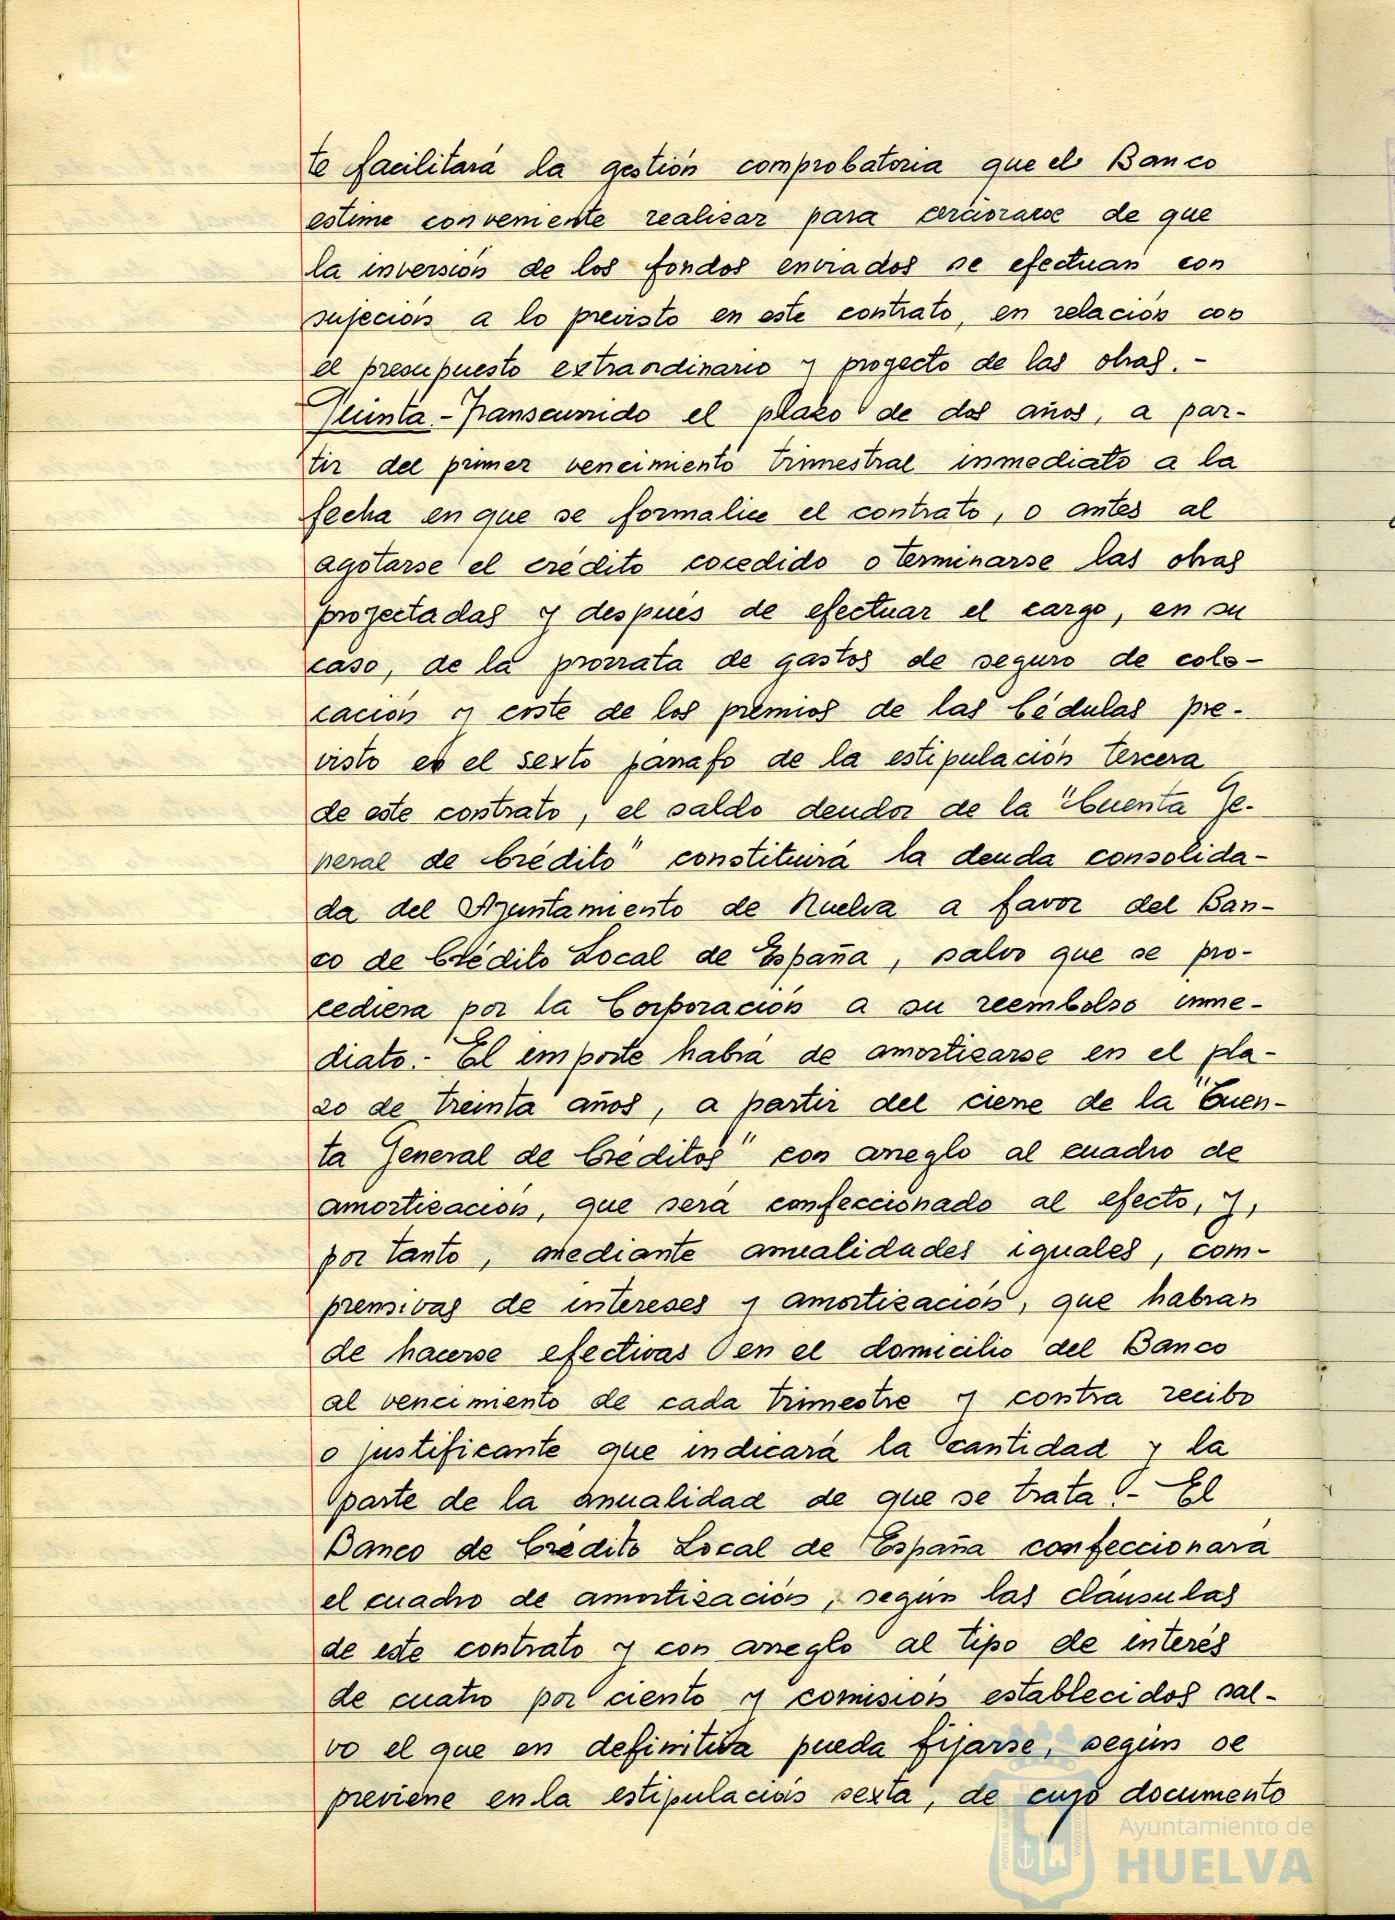 te facilitará la gestión comprobatoria que el Banco
estime conveniente realizar para cerciorarse de que
la inversión de los fondos enviados se efectuan con
sujeción a lo previsto en este contrato, en relación con
el presupuesto extraordinario y proyecto de las obras. -
Quinta.- Transcurrido el plazo de dos años, a par-
tir del primer vencimiento trimestral inmediato a la
fecha en que se formalice el contrato, o antes al
agotarse el crédito cocedido o terminarse las obras
proyectadas y después de efectuar el cargo, en su
caso, de la prorrata de gastos de seguro de colo-
cación y coste de los premios de las Cédulas pre-
visto en el sexto párrafo de la estipulación tercera
de este contrato, el saldo deudor de la "Cuenta Ge-
neral de Crédito" constituirá la deuda consolida-
da del Ayuntamiento de Huelva a favor del Ban-
co de Crédito Local de España, salvo que se pro-
cediera por la Corporación a su reembolso inme-
diato.- El importe habrá de amortizarse en el pla-
zo de treinta años, a partir del cierre de la "Cuen-
ta General de Créditos" con arreglo al cuadro de
amortización, que será confeccionado al efecto, y,
por tanto, mediante anualidades iguales, com-
prensivas de intereses y amortización, que habran
de hacerse efectivas en el domicilio del Banco
al vencimiento de cada trimestre y contra recibo
o justificante que indicará la cantidad y la
parte de la anualidad de que se trata.- El
Banco de Crédito Local de España confeccionará
el cuadro de amortización, según las cláusulas
de este contrato y con arreglo al tipo de interés
de cuatro por ciento y comisión establecidos sal-
vo el que en definitiva pueda fijarse, según se
previene en la estipulación sexta, de cuyo documento
Ayuntamiento de
HUELVA